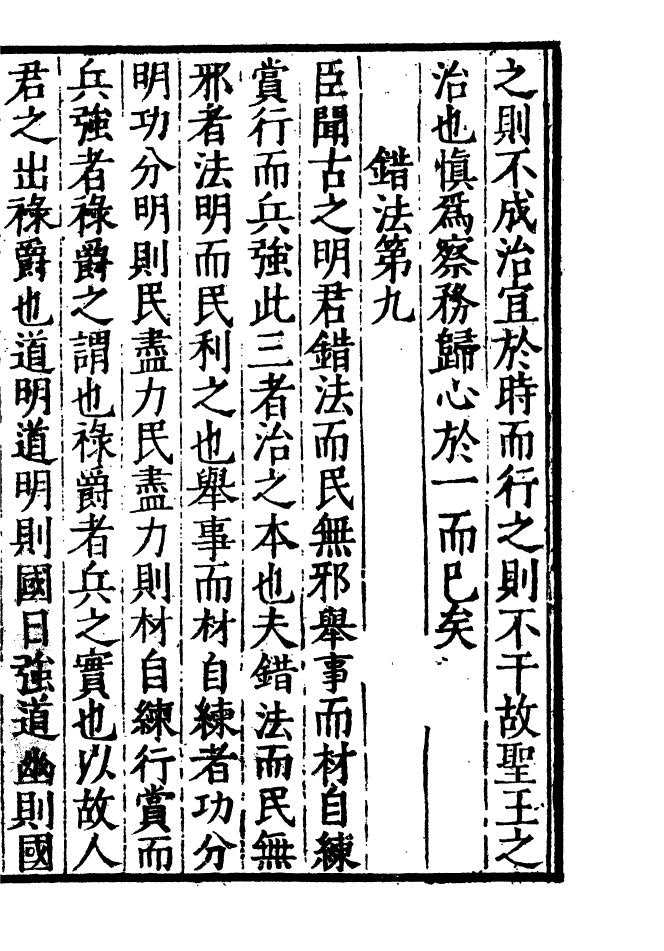 之則不成治宜於時而行之則不干故聖王之
治也慎爲察務歸心於一而已矣
錯法第九
臣聞古之明君錯法而民無邪舉事而材自練
賞行而兵強此三者治之本也夫錯法而民無
邪者法明而民利之也舉事而材自練者功分
明功分明則民盡力民盡力則材自練行賞而
兵強者祿爵之謂也祿爵者兵之實也以故人
君之出祿爵也道明道明則國日強道幽則國